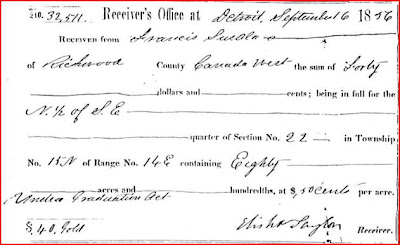 No. 32,571. Receiver's Office at Detroit, September 6 1856
Received from Francis
of Richwood County Canada West the sum of Forty
dollars and cents; being in full for the
N. ½ of S. E
quarter of Section No. 22 in Township
No. 15N of Range No. 14E containing Eighty
acres and hundredths, at $,50 cents per acre.
Under Graduation Act
$40, Gold Elisha Receiver.